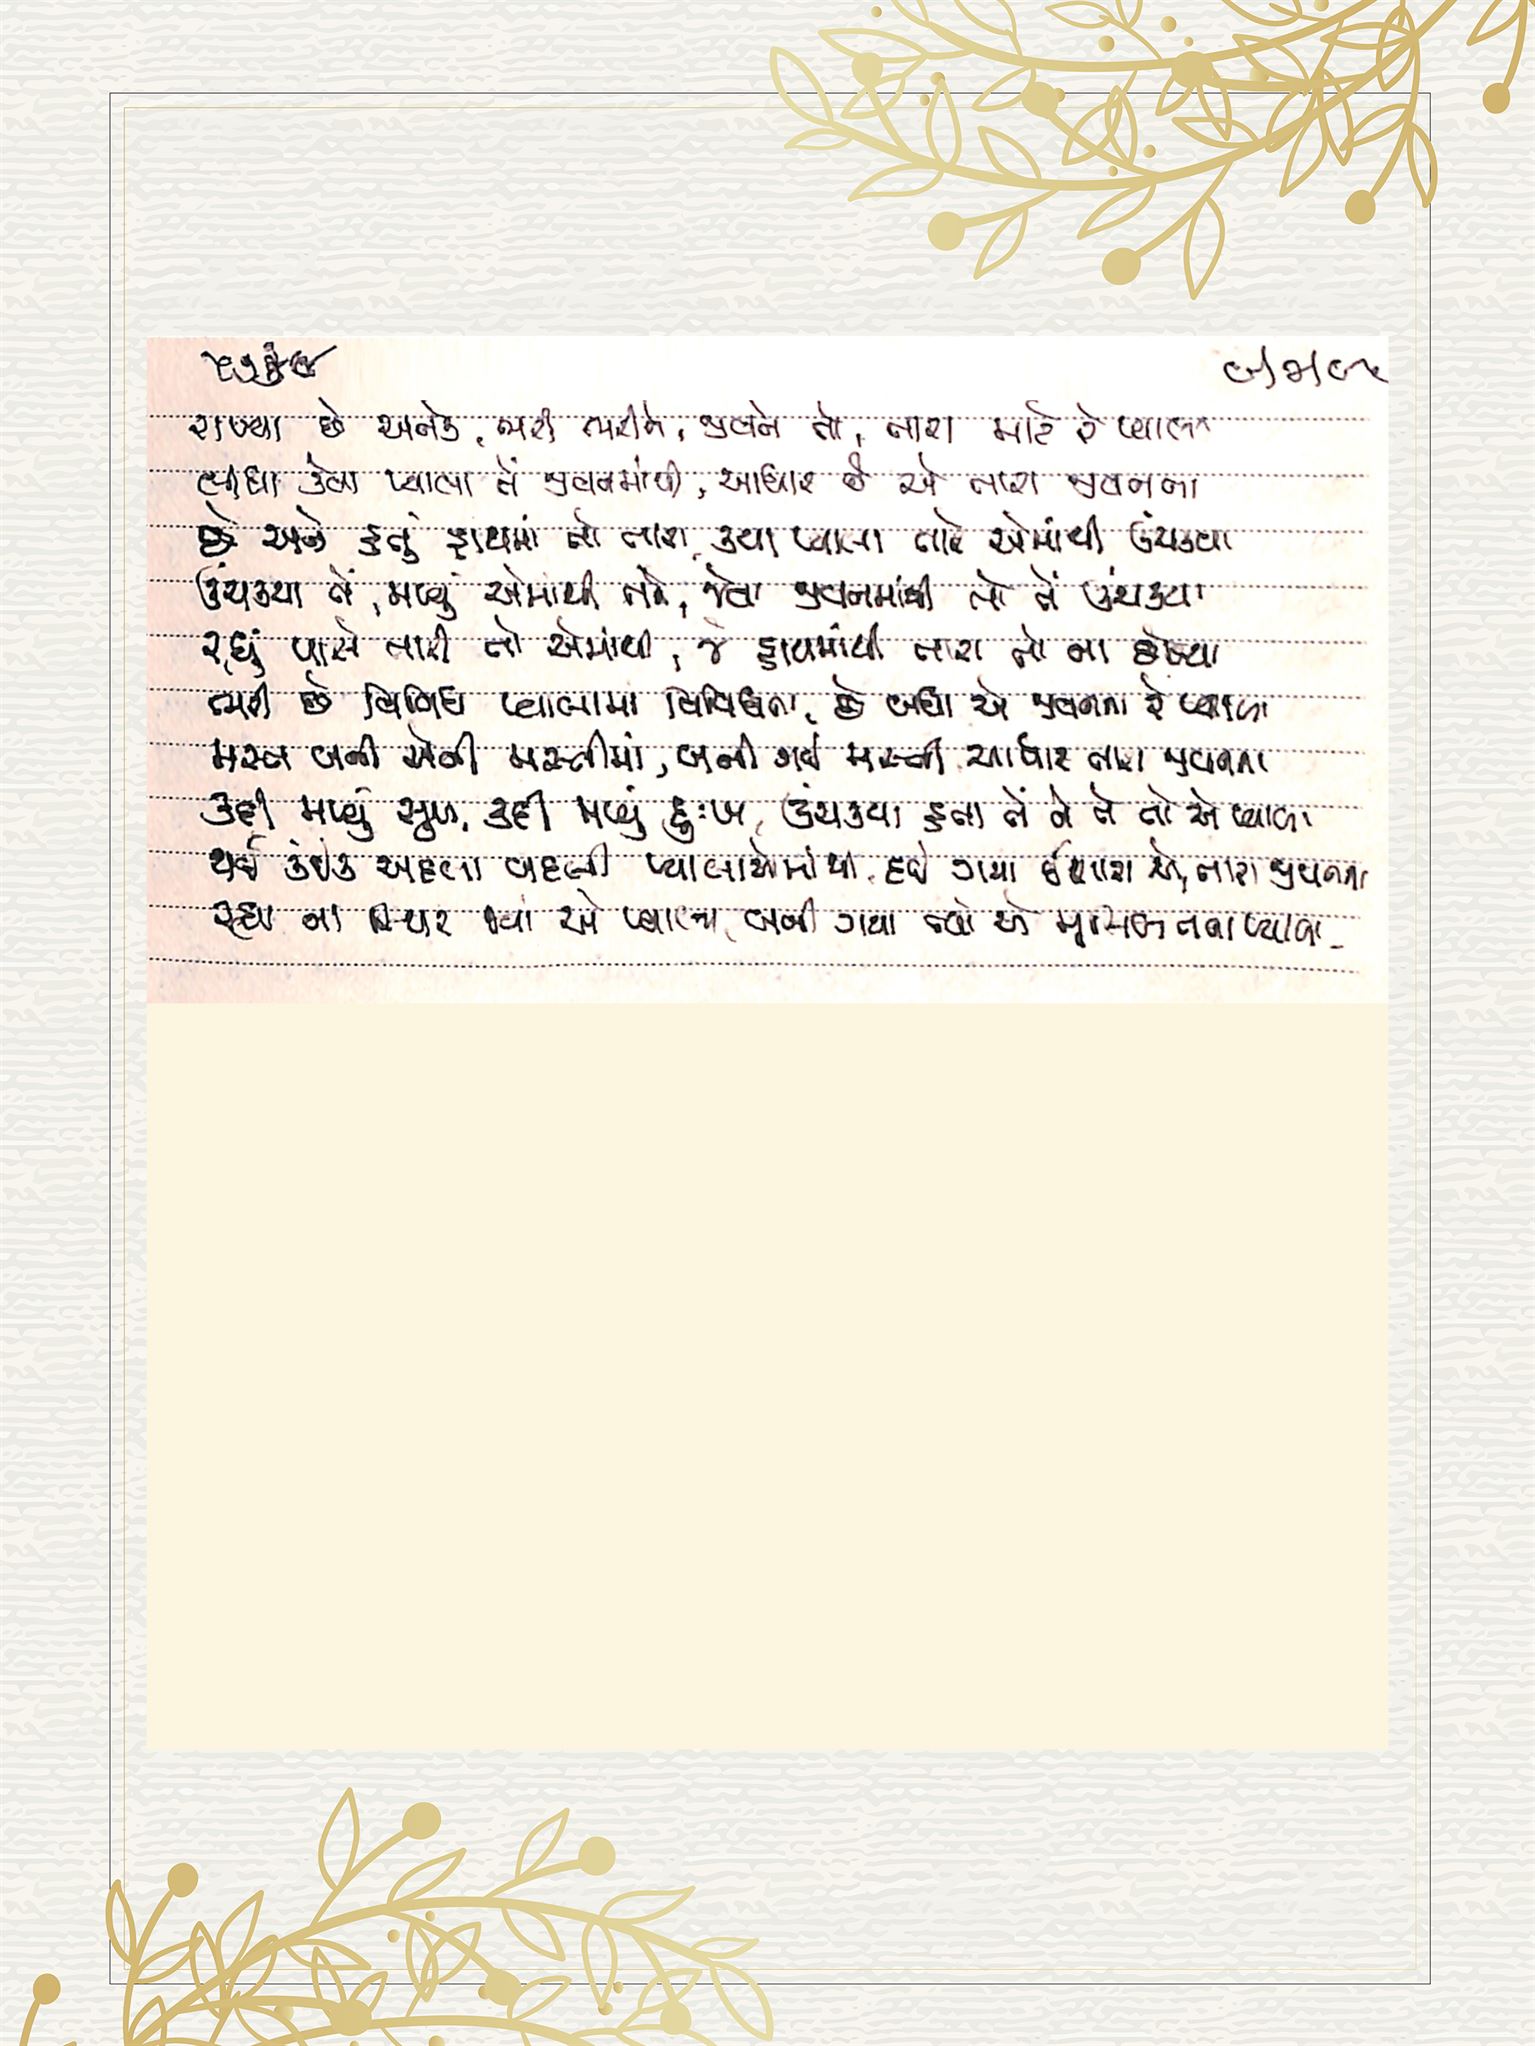 રાખ્યા છે અનેક, ભરી ભરીને, જીવને તો, તારા માટે રે પ્યાલા
લીધા કેવા પ્યાલા તેં જીવનમાંથી, આધાર છે એ તારા જીવનના
છે અને હતું હાથમાં તો તારા, કયા પ્યાલા તારે એમાંથી ઉંચક્યા
ઉંચક્યા તેં, મળ્યું એમાંથી તને, જેવા જીવનમાંથી તો તેં ઉંચક્યા
રહ્યું પાસે તારી તો એમાંથી, જે હાથમાંથી તારા તો ના છોડ્યા
ભરી છે વિવિધ પ્યાલામાં વિવિધતા, છે બધા એ જીવનના રે પ્યાલા
મસ્ત બની એની મસ્તીમાં, બની ગઈ મસ્તી આધાર તારા જીવનના
કદી મળ્યું સુખ, કદી મળ્યું દુઃખ, ઉંચક્યા હતા તેં જે તે તો એ પ્યાલા
થઈ કંઈક અદલા બદલી પ્યાલાઓમાંથી, દઈ ગયા ઈશારા એ, તારા જીવનના
રહ્યા ના સ્થિર જ્યાં એ પ્યાલા, બની ગયા ત્યાં એ મૃગજળના પ્યાલા